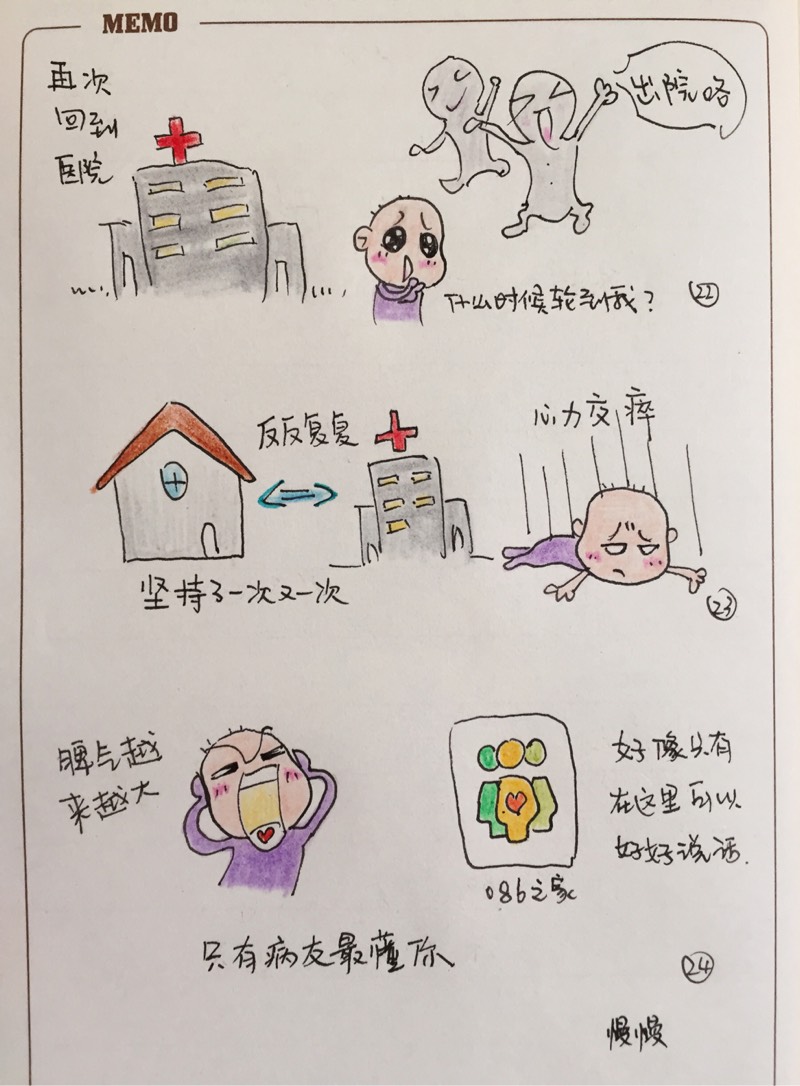 MEMO
再次
回到
医院
出院咯
什么时候轮到我?
22
反反复复
心力交瘁
坚持了一次又一次
23
脾气越
来越大
好像只有
在这里可以
好好说话.
086之家
只有病友最懂你
24
慢慢